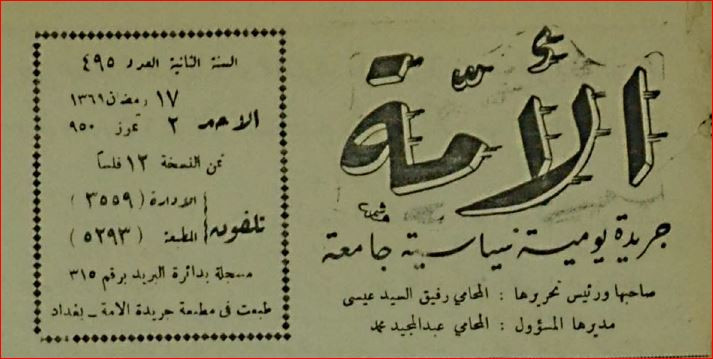 الأمة
جريدة يومية سياسية جامعة
صاحبها ورئيس تحريرها : المحامي رفيق السيد عيسى
مديرها المسؤول : المحامي عبدالمجيد محمد
السنة الثانية العدد ٤٩٥
١٧ رمضان ١٣٦٩
الاحد ٢ تموز ٩٥٠
ثمن النسخة ١٢ فلساً
تلفون الادارة ( ٣٥٥٩ )
المطبعة ( ٥٢٩٣ )
مسجلة بدائرة البريد برقم ٣١٥
طبعت في مطبعة جريدة الامة ــ بغداد